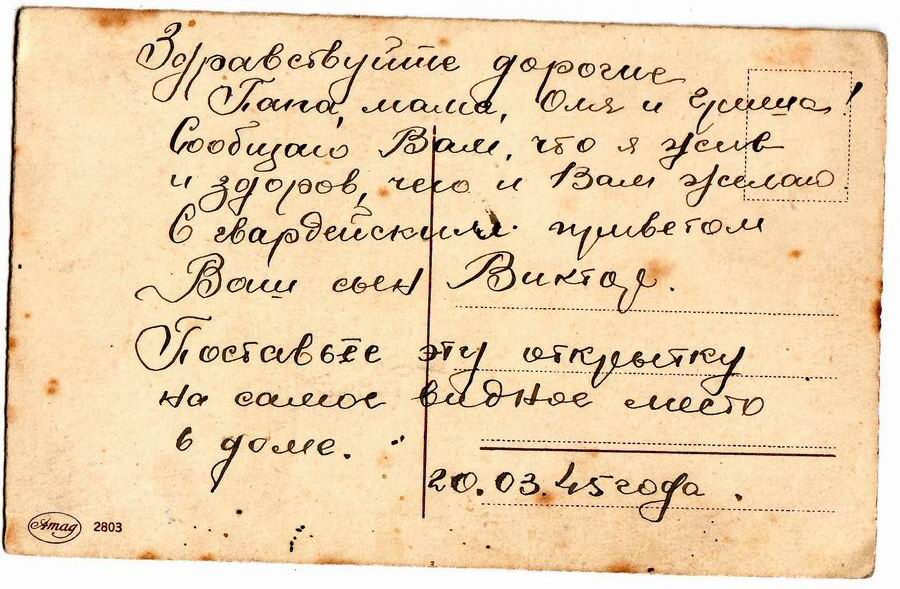 Здравствуйте дорогие
Папа, мама, Оля и Гриша!
Сообщаю Вам, что я жив
и здоров, чего и Вам желаю.
С гвардейским приветом
Ваш сын Виктор.
Поставьте эту открытку
на самое видное место
в доме.
20.03.45 года.
Amag 2803